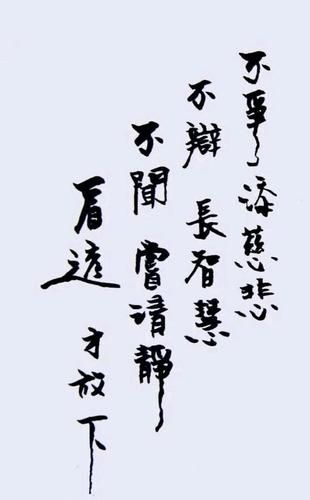 不爭 添慈悲
不辯 長智慧
不聞 嘗清靜
看透 才放下